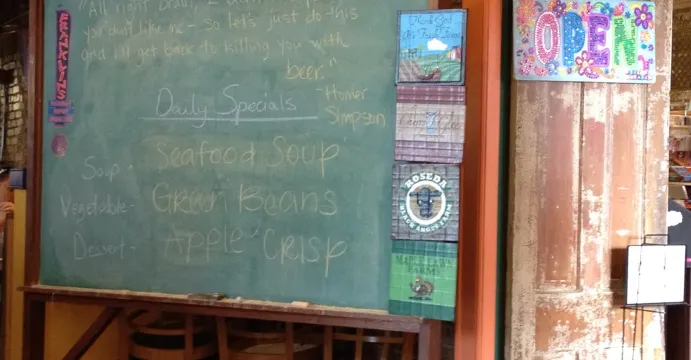 "All right brain, I don't
you don't like me - so let's just do this
and I'll get back to killing you with
beer."
-Homer
Simpson
Daily Specials
Soup - Seafood Soup
Vegetable - Green Beans
Dessert - Apple Crisp
ROSEDA
BLACK ANGUS FARM
MAPLE LAWN
FARMS
OPEN